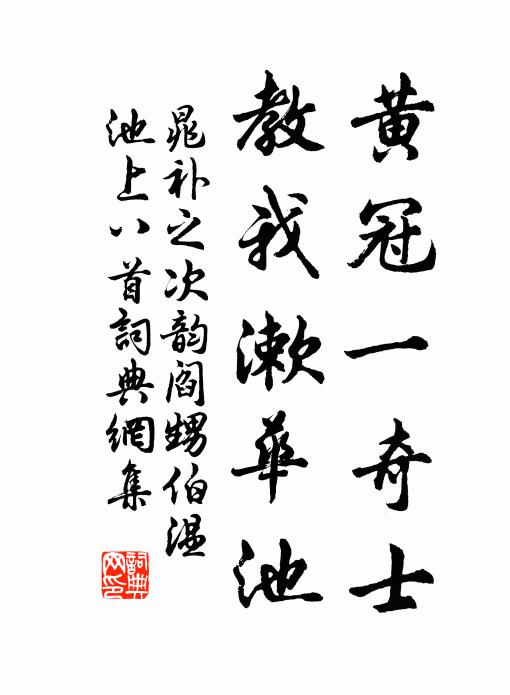 黄冠一奇士
教我漱華池
晁补之次韵阎甥伯温
池上八首詞典網集
詞典
网印